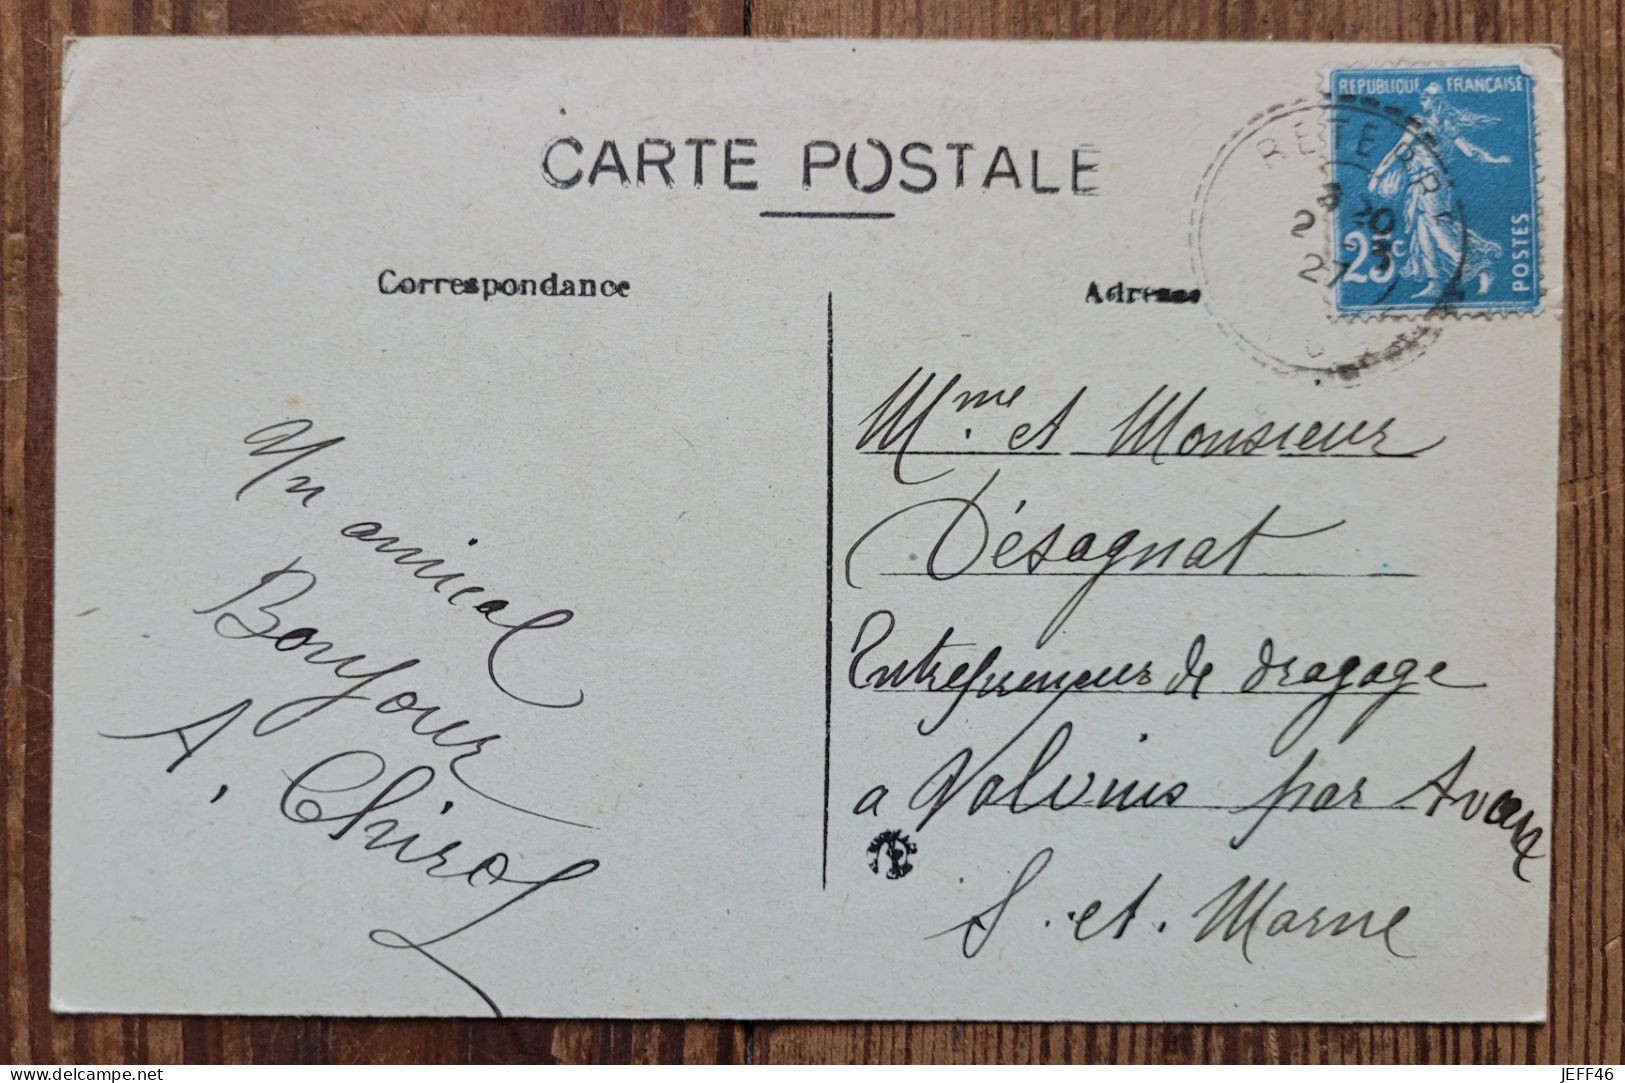 CARTE POSTALE
Correspondance
Adresse
REPUBLIQUE FRANÇAISE
25c
POSTES
RETERRE
20
27 3
Un amical
Bonjour
A. Chirol
Mme et Monsieur
Désagnat
Entrepreneur de dragage
a Valvins par Avon
S. et. Marne
www.delcampe.net
JEFF46